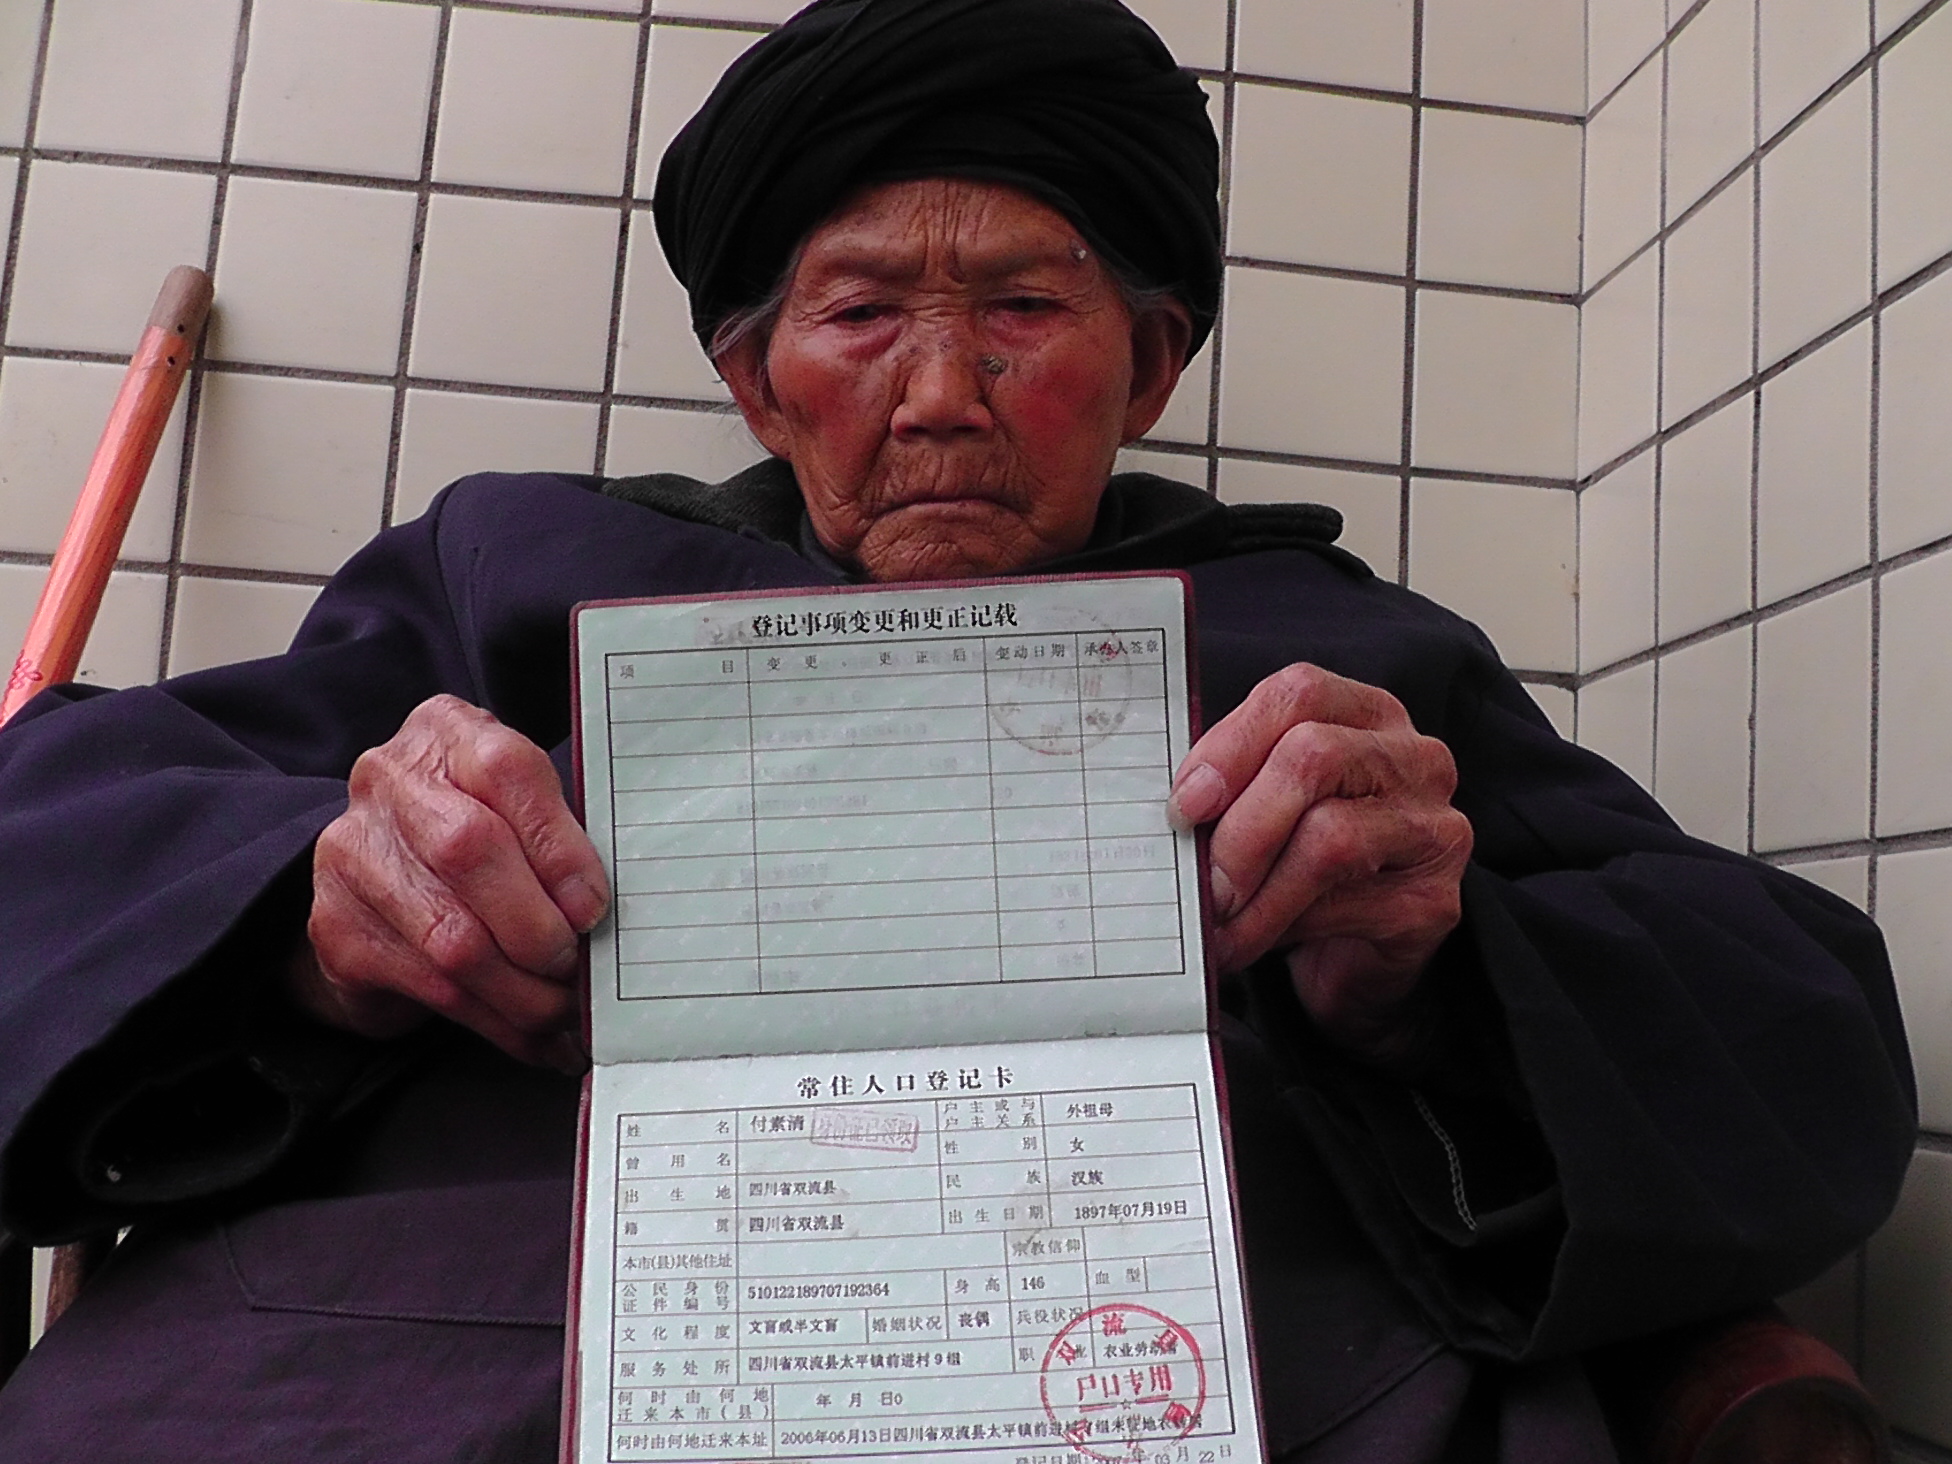 登记事项变更和更正记载
项目 变更、更正后 变动日期 承办人签章
常住人口登记卡
姓名 付素清 身份证已领取 户主或与户主关系 外祖母
曾用名 性别 女
出生地 四川省双流县 民族 汉族
籍贯 四川省双流县 出生日期 1897年07月19日
本市(县)其他住址 宗教信仰
公民身份证件编号 510122189707192364 身高 146 血型
文化程度 文盲或半文盲 婚姻状况 丧偶 兵役状况
服务处所 四川省双流县太平镇前进村9组 职业 农业劳动者
何时由何地迁来本市(县) 年月日0
户口专用
何时由何地迁来本址 2006年06月13日四川省双流县太平镇前进村 组
登记日期: 年03月22日